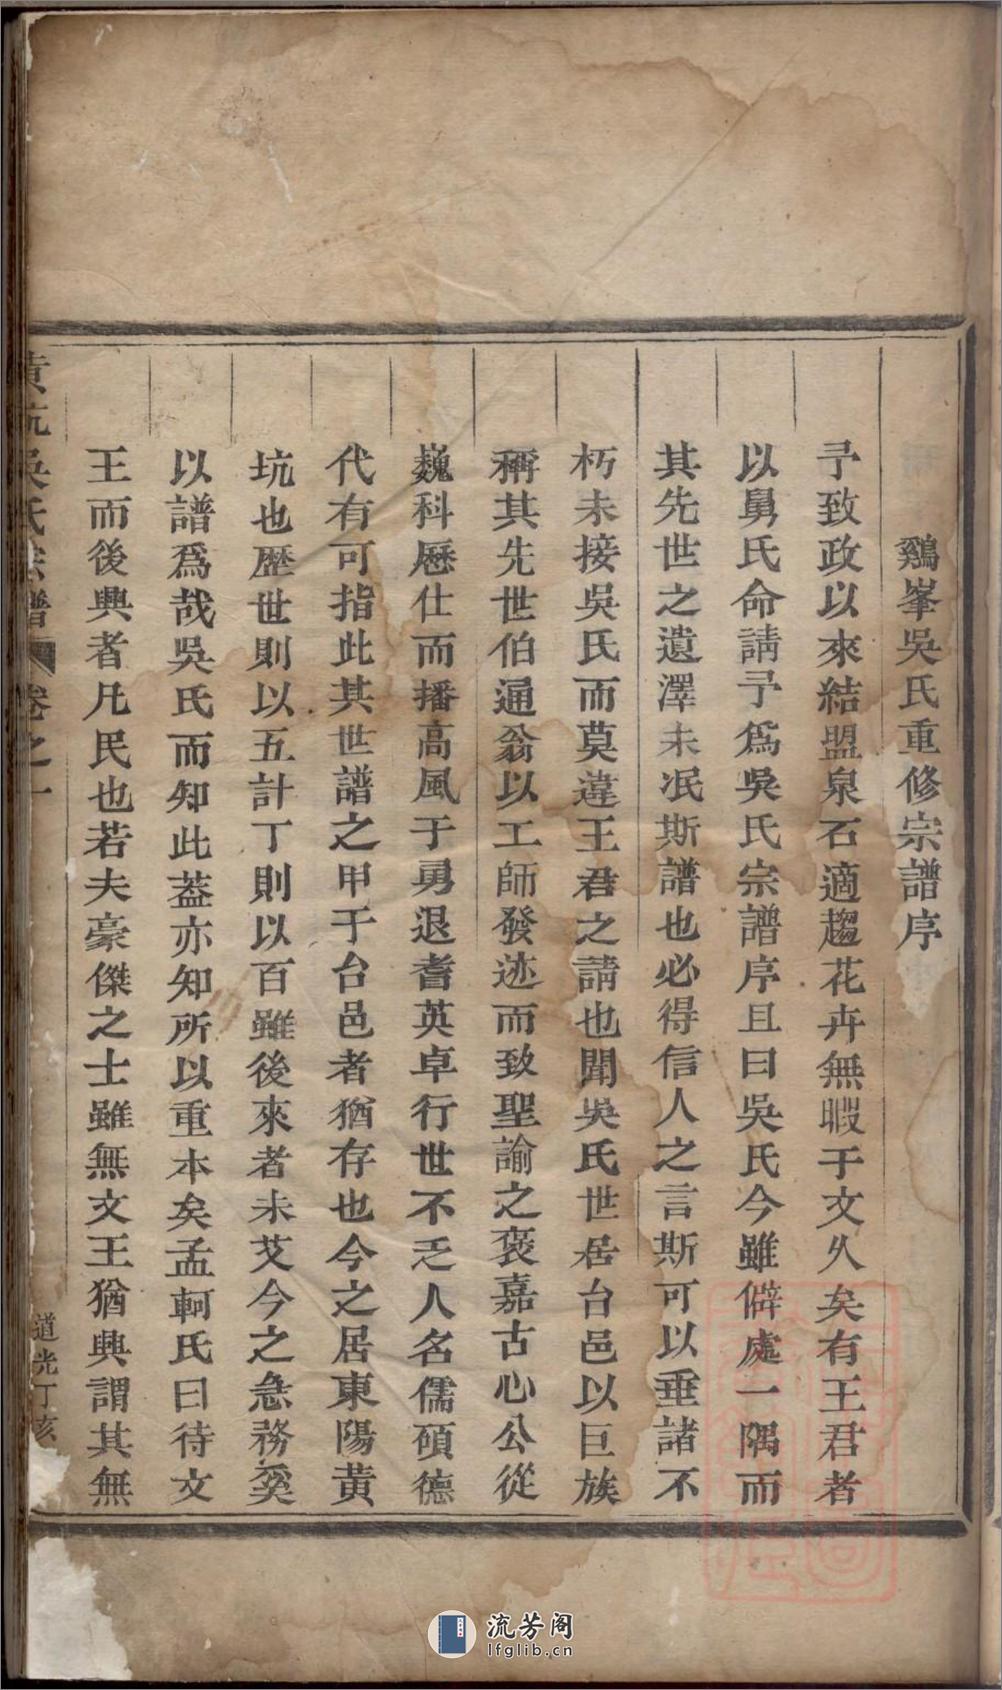 鷄峯吳氏重修宗譜序
予致政以來結盟泉石適趨花卉無暇于文久矣有王君者
以舅氏命請予爲吳氏宗譜序且曰吳氏今雖僻處一隅而
其先世之遺澤未泯斯譜也必得信人之言斯可以垂諸不
朽未接吳氏而莫違王君之請也聞吳氏世居台邑以巨族
稱其先世伯通翁以工師發迹而致聖諭之褒嘉古心公從
巍科歷仕而播高風于勇退耆英卓行世不乏人名儒碩德
代有可指此其世譜之甲于台邑者猶存也今之居東陽黄
坑也歷世則以五計丁則以百雖後來者未艾今之急務奚
以譜爲哉吳氏而知此葢亦知所以重本矣孟軻氏曰待文
王而後興者凡民也若夫豪傑之士雖無文王猶興謂其無
黄坑吳氏宗譜 卷之一 道光丁亥
流芳阁
lfglib.cn